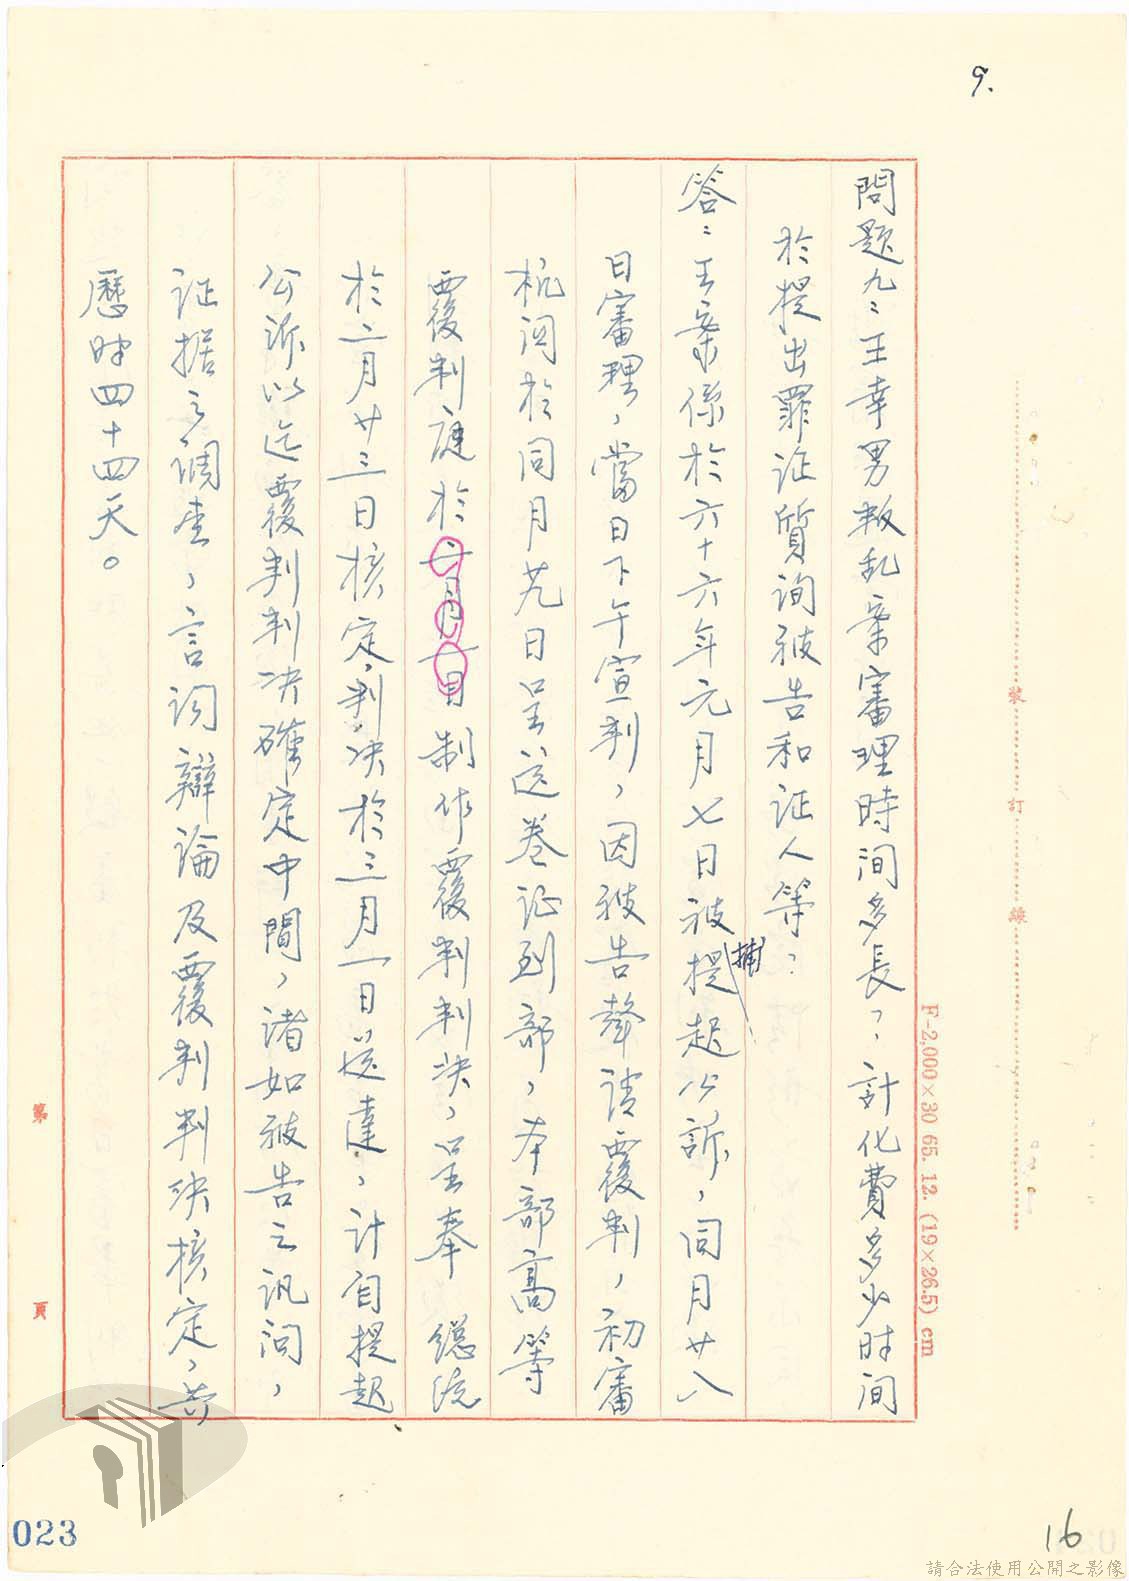 9.
問題九：王幸男叛乱案審理時间多長？計化費多少时间
於提出罪证質詢被告和证人等？
答：王案係於六十六年元月七日被提起公訴，同月廿八
捕
日審理，當日下午宣判，因被告聲请覆判，初審
机関於同月廿九日呈送卷证到部，本部高等
覆判庭於二月十日制作覆判判决，呈奉 總统
於二月廿三日核定，判决於三月一日送達，计自提起
公訴以迄覆判判决確定中間，诸如被告之訊问，
证据之调查，言词辯論及覆判判决核定，共
歷时四十四天。
裝 訂 線
F-2,000×30 65. 12. (19×26.5) cm
第 頁
023
16
請合法使用公開之影像